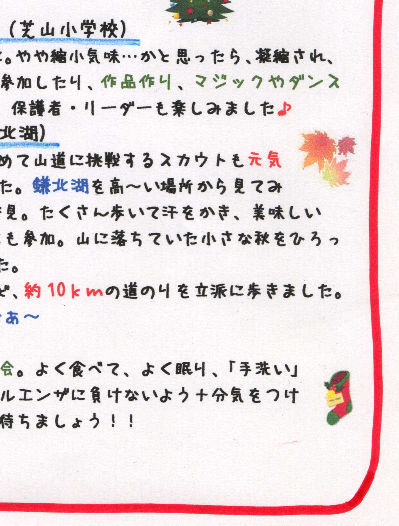 (芝山小学校)
。やや縮小気味…かと思ったら、凝縮され、
参加したり、作品作り、マジックやダンス
保護者・リーダーも楽しみました♪
北湖)
めて山道に挑戦するスカウトも元気
た。鎌北湖を高〜い場所から見てみ
見。たくさん歩いて汗をかき、美味しい
も参加。山に落ちていた小さな秋をひろっ
た。
、約10kmの道のりを立派に歩きました。
ぁ〜
会。よく食べて、よく眠り、「手洗い」
ルエンザに負けないよう十分気をつけ
待ちましょう!!